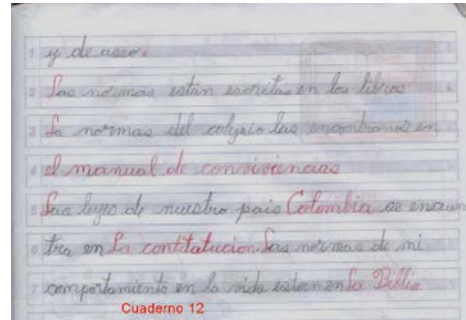 1 y de aseo.
2 Las normas están escritas en los libros
3 La normas del colegio las encontramos en
4 el manual de convivencias
5 Las leyes de nuestro pais Colombia se encuen
6 tra en La contitatucion. Las normas de mi
7 comportamiento en la vida estan en la Biblia
Cuaderno 12